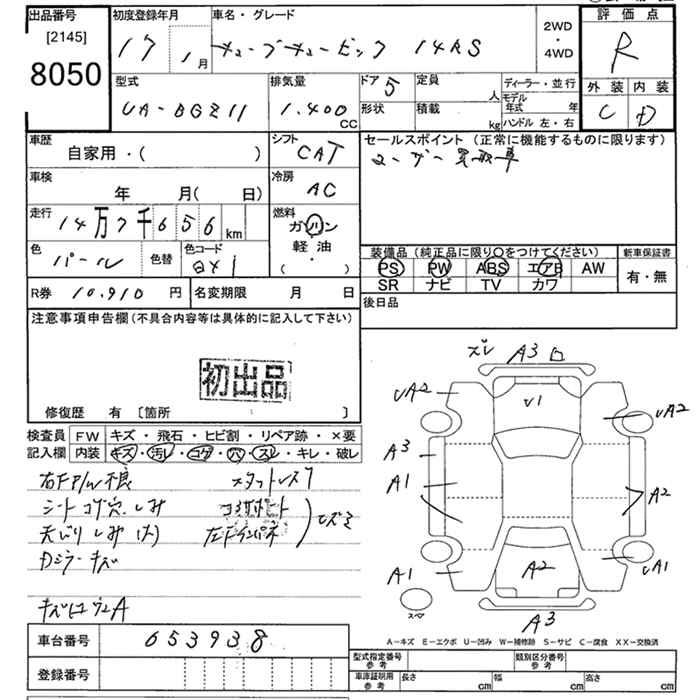 出品番号 [2145] 8050
初度登録年月 17年 1月
車名・グレード キューブキュービック 14RS
2WD・4WD
評価点 R
外装 C 内装 D
型式 UA-BGZ11
排気量 1.400 CC
ドア 5 定員 人
形状 積載 kg
ディーラー・並行
モデル年式 年
ハンドル 左・右
車歴 自家用・( )
シフト CAT
セールスポイント (正常に機能するものに限ります)
ユーザー買取車
車検 年 月(日)
冷房 AC
走行 14万7千656km
燃料 ガソリン 軽油 ( ・ )
色 パール 色替 色コード
装備品 (純正品に限り○をつけてください)
PS PW ABS エアB AW
SR ナビ TV カワ
新車保証書 有・無
R券 10,910円 名変期限 月 日
後日品
注意事項申告欄 (不具合内容等は具体的に記入して下さい)
初出品
修復歴 有 〔箇所 〕
検査員記入欄 FW キズ・飛石・ヒビ割・リペア跡・×要
内装 キズ・汚レ・コゲ・穴・スレ・キレ・破レ
シートコゲ穴 しみ
キズ
ズレ A3
UA2 U1 UA2
A3
A1 A2
A1 A2 UA1
A3
スペア
A-キズ E-エクボ U-凹み W-補修跡 S-サビ C-腐食 XX-交換済
車台番号 653938
登録番号
型式指定番号 参考 類別区分番号 参考
車庫証明用 参考 長さ cm 幅 cm 高さ cm